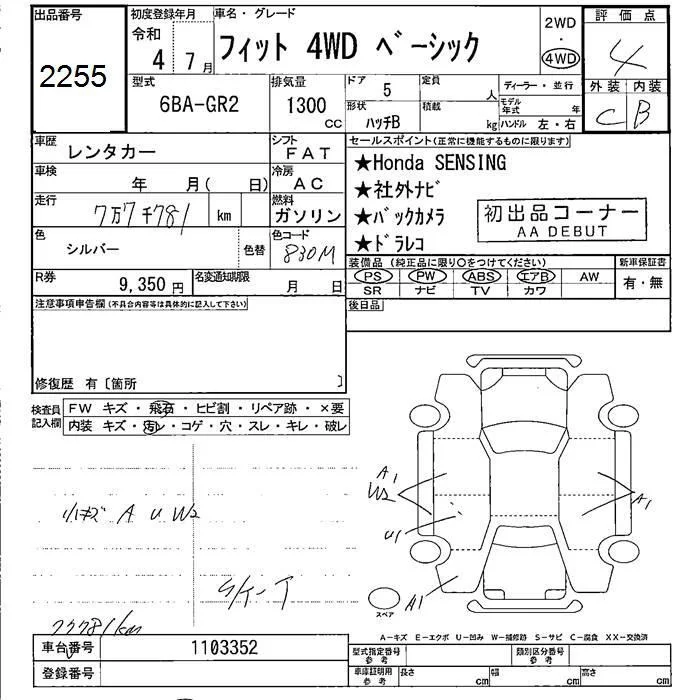 出品番号
2255
初度登録年月
令和
4 7月
車名・グレード
フィット 4WD ベーシック
2WD
・
4WD
評価点
4
外装 内装
C B
型式
6BA-GR2
排気量
1300
CC
ドア
5
定員
人
形状
ハッチB
積載
kg
ディーラー・並行
モデル年式
年
ハンドル 左・右
車歴
レンタカー
シフト
FAT
車検
年 月( 日)
冷房
AC
走行
7万7千781 km
燃料
ガソリン
色
シルバー
色替
色コード
830M
R券
9,350 円
名変通知期限
月 日
セールスポイント(正常に機能するものに限ります)
★Honda SENSING
★社外ナビ
★バックカメラ
★ドラレコ
初出品コーナー
AA DEBUT
装備品(純正品に限り○をつけてください)
PS PW ABS エアB AW
SR ナビ TV カワ
新車保証書
有・無
後日品
注意事項申告欄(不具合内容等は具体的に記入して下さい)
修復歴 有〔箇所 〕
検査員
記入欄
FW キズ・飛石・ヒビ割・リペア跡・×要
内装 キズ・汚レ・コゲ・穴・スレ・キレ・破レ
小キズ A U W2
77781km
A1
W2
U1
A1
A1
スペア
A-キズ E-エクボ U-凹み W-補修跡 S-サビ C-腐食 XX-交換済
車台番号
1103352
登録番号
型式指定番号
参考
類別区分番号
参考
車庫証明用
参考
長さ
cm
幅
cm
高さ
cm